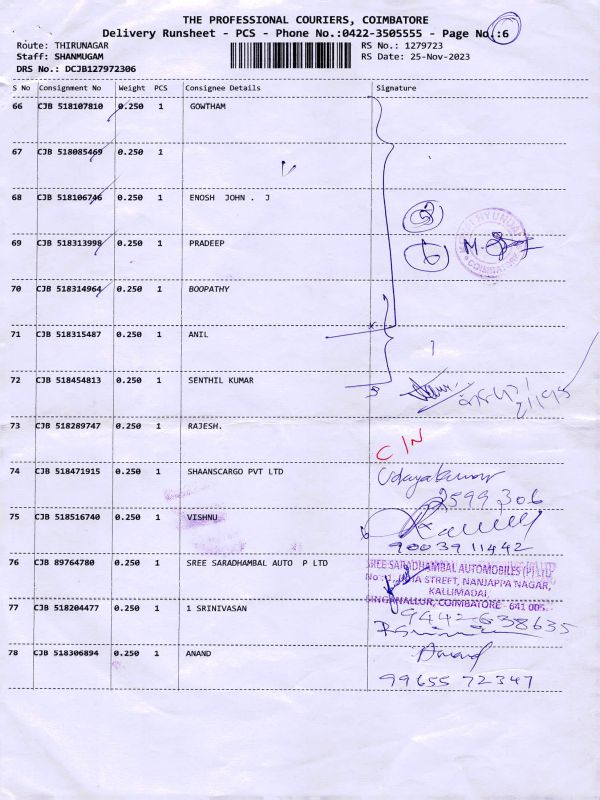 THE PROFESSIONAL COURIERS, COIMBATORE
Delivery Runsheet - PCS - Phone No.:0422-3505555 - Page No.:6
Route: THIRUNAGAR RS No.: 1279723
Staff: SHANMUGAM RS Date: 25-Nov-2023
DRS No.: DCJB127972306
S No Consignment No Weight PCS Consignee Details Signature
66 CJB 518107810 0.250 1 GOWTHAM
67 CJB 518085469 0.250 1
68 CJB 518106746 0.250 1 ENOSH JOHN . J
69 CJB 518313998 0.250 1 PRADEEP
6
HYUNDAI
COIMBATORE
70 CJB 518314964 0.250 1 BOOPATHY
71 CJB 518315487 0.250 1 ANIL
72 CJB 518454813 0.250 1 SENTHIL KUMAR
73 CJB 518289747 0.250 1 RAJESH.
C/N
74 CJB 518471915 0.250 1 SHAANSCARGO PVT LTD
Udayakumar
2599306
75 CJB 518516740 0.250 1 VISHNU
9003911442
76 CJB 89764780 0.250 1 SREE SARADHAMBAL AUTO P LTD
SREE SARADHAMBAL AUTOMOBILES (P) LTD
STREET, NANJAPPA NAGAR,
KALLIMADAI,
SINGANALLUR, COIMBATORE - 641 005.
77 CJB 518204477 0.250 1 1 SRINIVASAN
9442-638635
78 CJB 518306894 0.250 1 ANAND
Anand
99655 72347